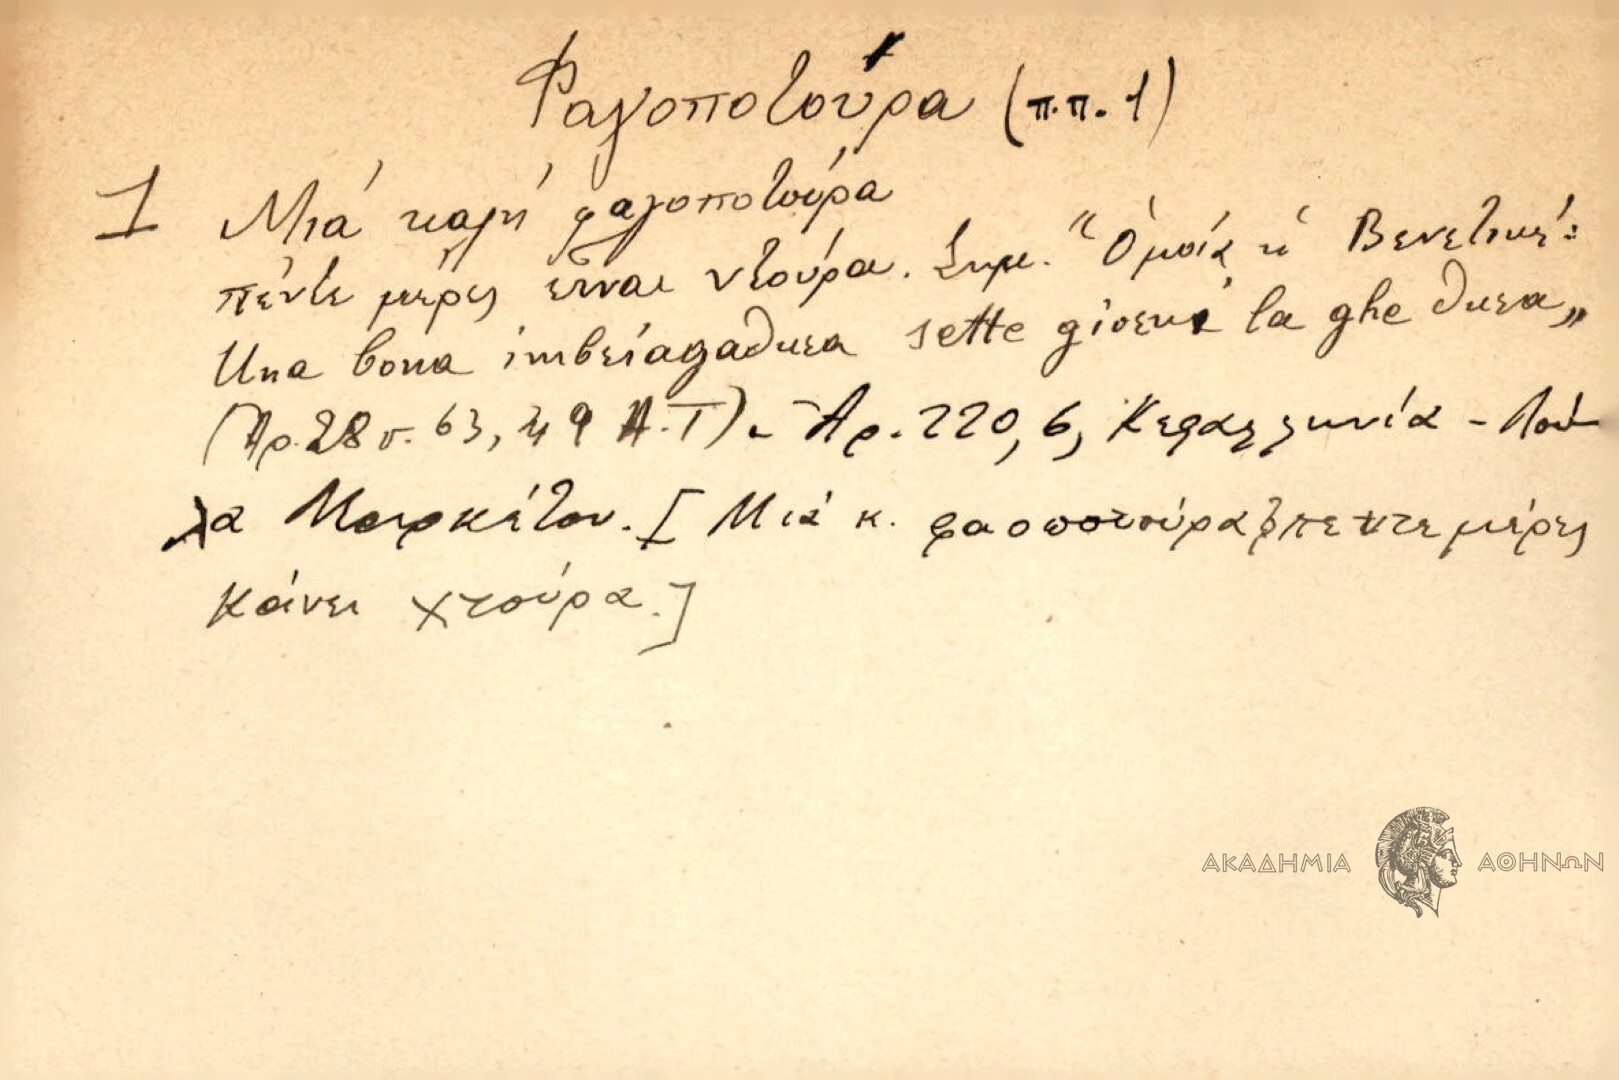 Φαγοποτούρα (π.π. 1)
1 Μιά καλή φαγοποτούρα
πέντε μέρες εἶναι ντούρα. Σημ. "Ὁμοία ἡ Βενετική:
Una bona imbriagadura sette giorni la ghe dura„
(Ἀρ. 28 σ. 63, 49 Α.Τ). - Ἀρ. 220, 6, Κεφαλληνία - Λού
λα Μαρκέτου. [Μιά κ. φαοποτούρα πέντε μέρες
κάνει χτούρα.]
ΑΚΑΔΗΜΙΑ ΑΘΗΝΩΝ